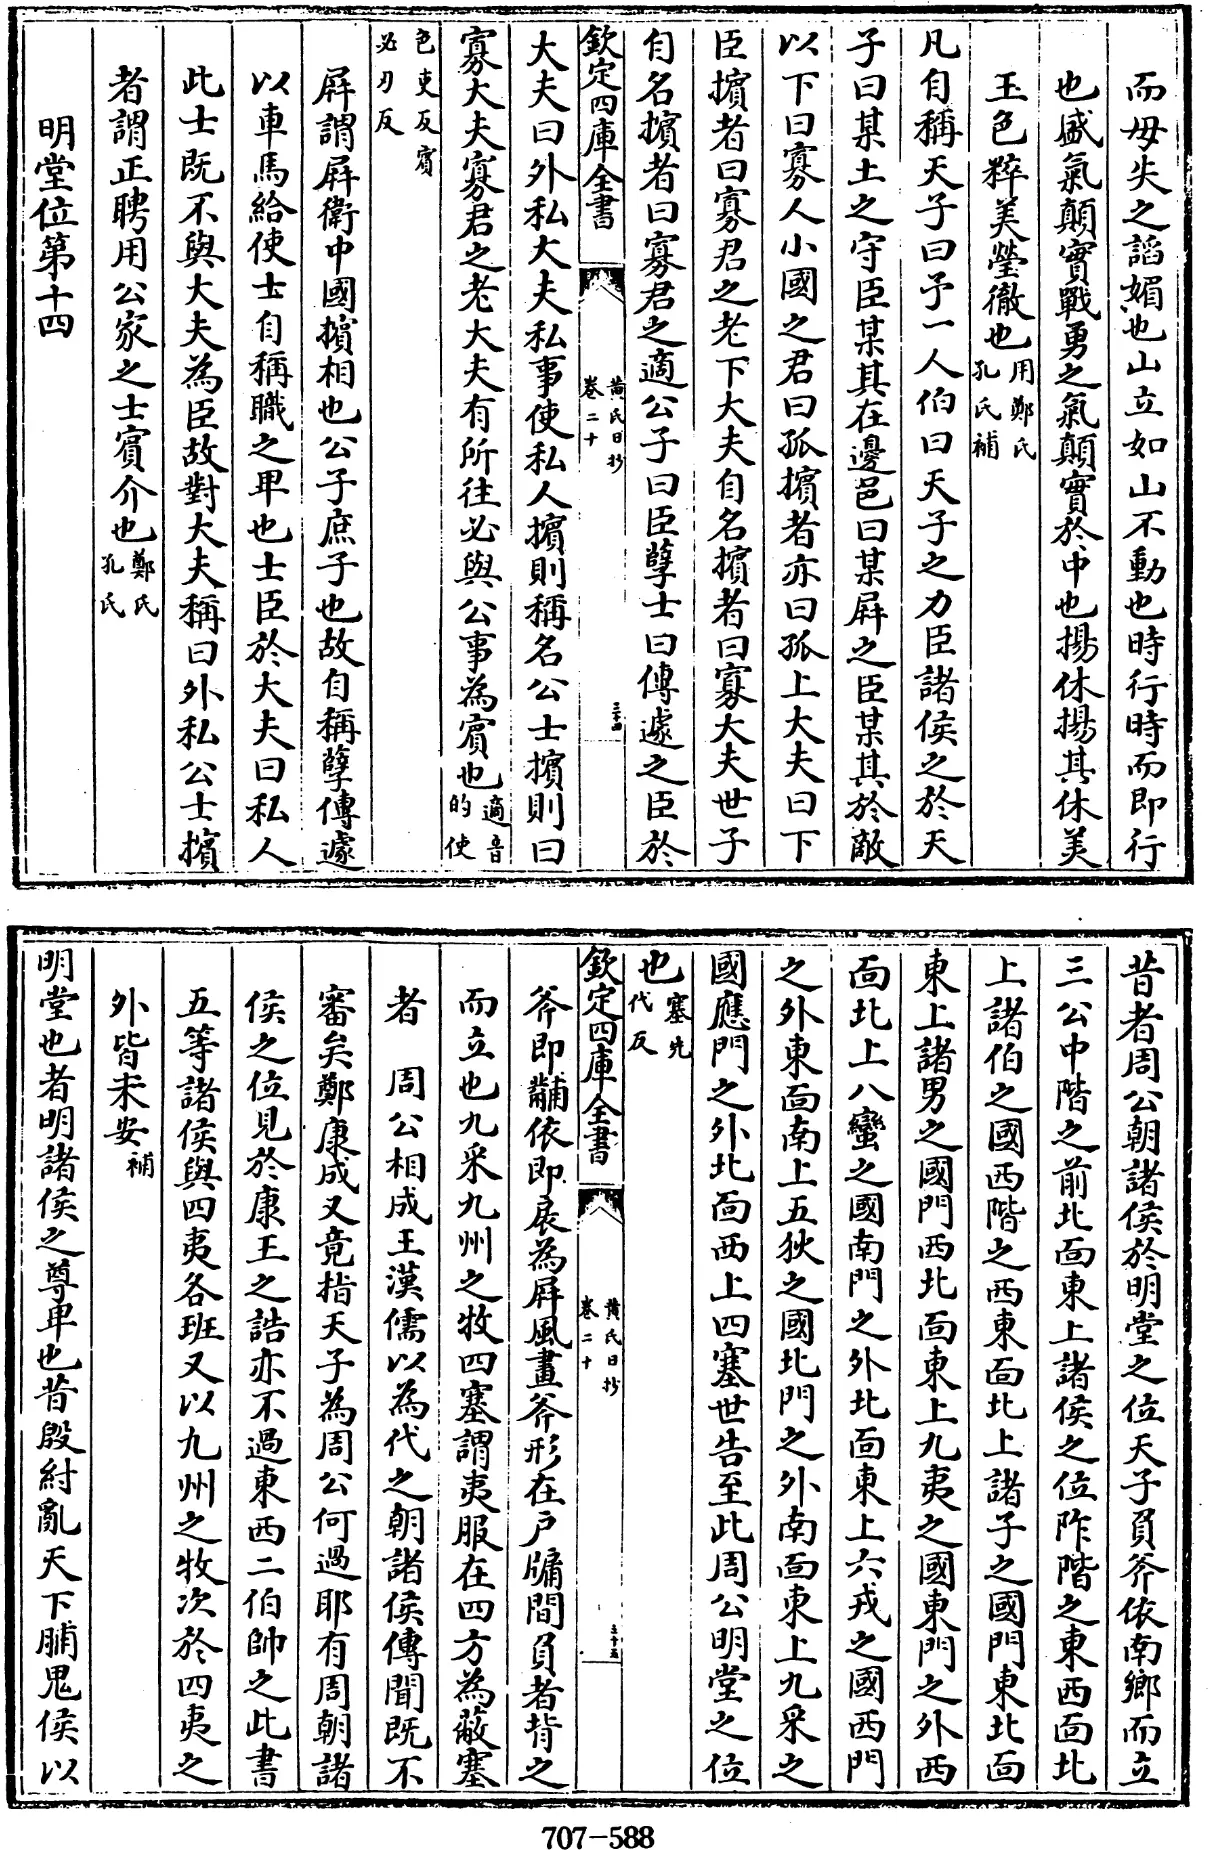 而毋失之謟媚也山立如山不動也時行時而即行
也盛氣顛實戰勇之氣顛實於中也揚休揚其休美
玉色粹美瑩徹也用鄭氏孔氏補
凡自稱天子曰予一人伯曰天子之力臣諸侯之於天
子曰某土之守臣某其在邊邑曰某屏之臣某其於敵
以下曰寡人小國之君曰孤擯者亦曰孤上大夫曰下
臣擯者曰寡君之老下大夫自名擯者曰寡大夫世子
自名擯者曰寡君之適公子曰臣孽士曰傳遽之臣於
欽定四庫全書
黄氏日抄
卷二十
三十四
大夫曰外私大夫私事使私人擯則稱名公士擯則曰
寡大夫寡君之老大夫有所往必與公事為賓也適音的使
色吏反賓必刃反
屏謂屏衛中國擯相也公子庶子也故自稱孽傳遽
以車馬給使士自稱職之卑也士臣於大夫曰私人
此士既不與大夫為臣故對大夫稱曰外私公士擯
者謂正聘用公家之士賓介也鄭氏孔氏
明堂位第十四
昔者周公朝諸侯於明堂之位天子負斧依南鄉而立
三公中階之前北面東上諸侯之位阼階之東西面北
上諸伯之國西階之西東面北上諸子之國門東北面
東上諸男之國門西北面東上九夷之國東門之外西
面北上八蠻之國南門之外北面東上六戎之國西門
之外東面南上五狄之國北門之外南面東上九采之
國應門之外北面西上四塞世告至此周公明堂之位
也塞先代反
欽定四庫全書
黄氏日抄
卷二十
三十五
斧即黼依即扆為屏風畫斧形在户牖間負者背之
而立也九采九州之牧四塞謂夷服在四方為蔽塞
者　周公相成王漢儒以為代之朝諸侯傳聞既不
審矣鄭康成又竟指天子為周公何過耶有周朝諸
侯之位見於康王之誥亦不過東西二伯帥之此書
五等諸侯與四夷各班又以九州之牧次於四夷之
外皆未安補
明堂也者明諸侯之尊卑也昔殷紂亂天下脯鬼侯以
707-588